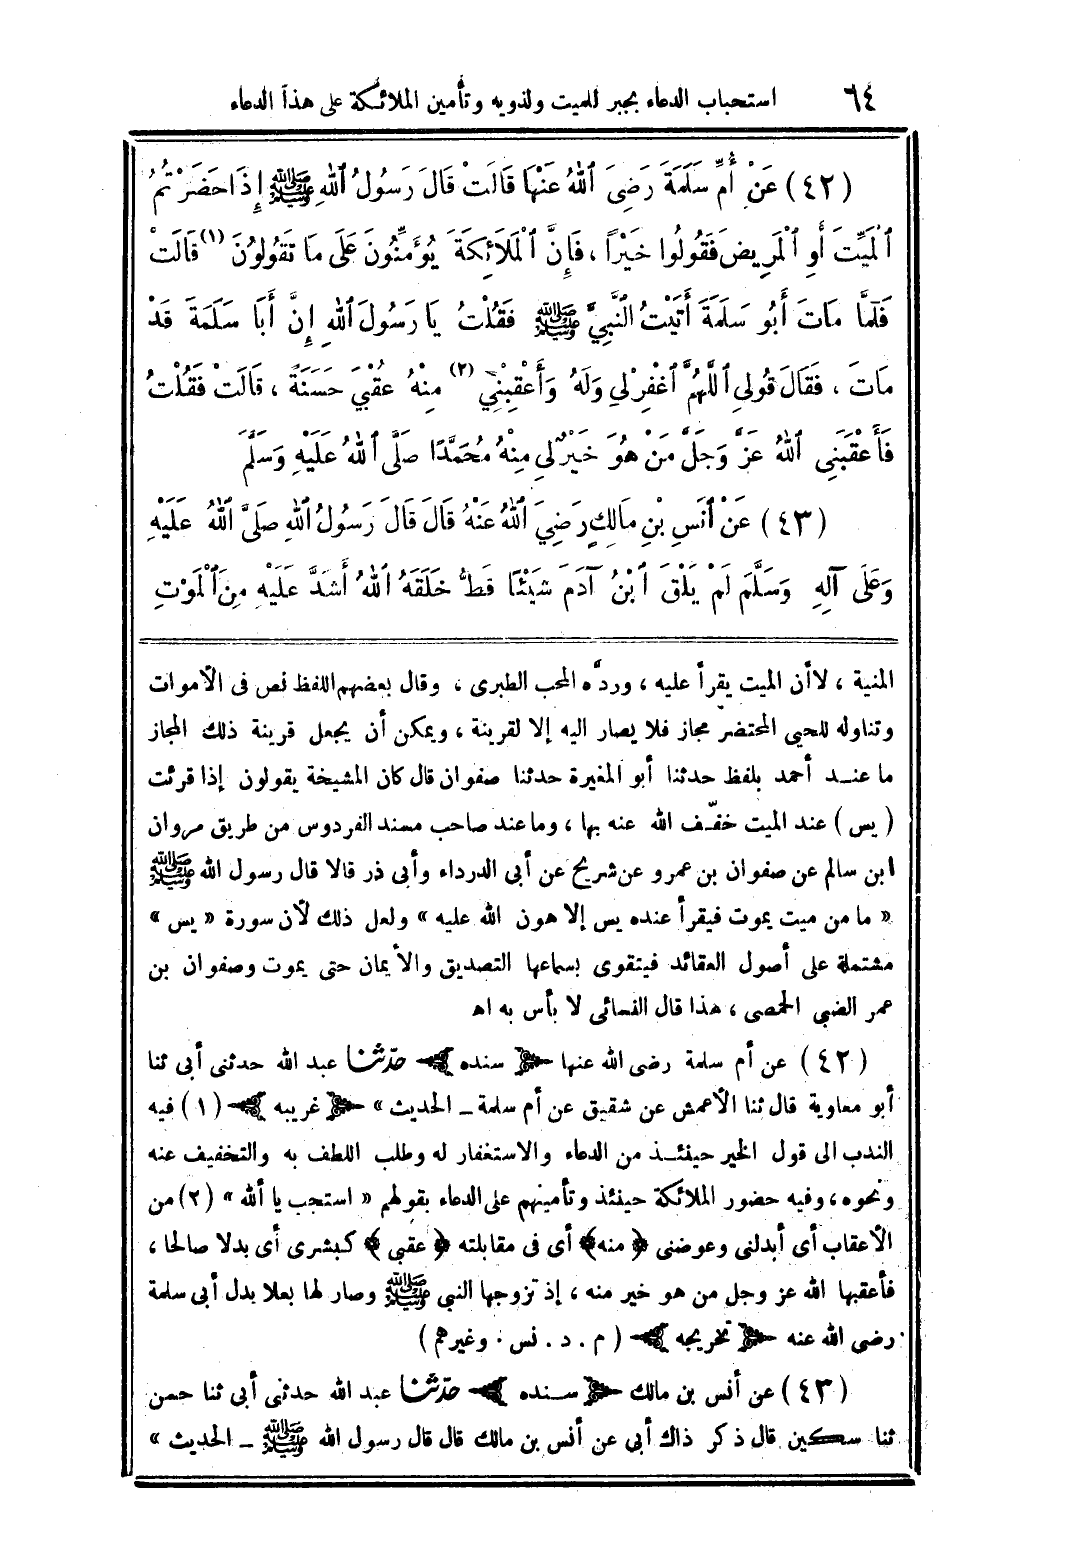 ٦٤ استحباب الدعاء بجبر للميت ولذويه وتأمين الملائكة على هذا الدعاء
(٤٢) عَنْ أُمِّ سَلَمَةَ رَضِىَ اللهُ عَنْهَا قَالَتْ قَالَ رَسُولُ اللهِ ﷺ إِذَا حَضَرْتُمُ
الْمَيِّتَ أَوِ الْمَرِيضَ فَقُولُوا خَيْرًا ، فَإِنَّ الْمَلَائِكَةَ يُؤَمِّنُونَ عَلَى مَا تَقُولُونَ (١) قَالَتْ
فَلَمَّا مَاتَ أَبُو سَلَمَةَ أَتَيْتُ النَّبِيَّ ﷺ فَقُلْتُ يَا رَسُولَ اللهِ إِنَّ أَبَا سَلَمَةَ قَدْ
مَاتَ ، فَقَالَ قُولِي اللَّهُمَّ اغْفِرْ لِي وَلَهُ وَأَعْقِبْنِي (٢) مِنْهُ عُقْبَى حَسَنَةً ، قَالَتْ فَقُلْتُ
فَأَعْقَبَنِي اللهُ عَزَّ وَجَلَّ مَنْ هُوَ خَيْرٌ لِي مِنْهُ مُحَمَّدًا صَلَّى اللهُ عَلَيْهِ وَسَلَّمَ
(٤٣) عَنْ أَنَسِ بْنِ مَالِكٍ رَضِيَ اللهُ عَنْهُ قَالَ قَالَ رَسُولُ اللهِ صَلَّى اللهُ عَلَيْهِ
وَعَلَى آلِهِ وَسَلَّمَ لَمْ يَلْقَ ابْنُ آدَمَ شَيْئًا قَطُّ خَلَقَهُ اللهُ أَشَدَّ عَلَيْهِ مِنَ الْمَوْتِ
المنية ، لا أن الميت يقرأ عليه ، وردَّه المحب الطبرى ، وقال بعضهم اللفظ نص فى الأموات
وتناوله للحى المحتضر مجاز فلا يصار اليه إلا لقرينة ، ويمكن أن يجعل قرينة ذلك المجاز
ما عند أحمد بلفظ حدثنا أبو المغيرة حدثنا صفوان قال كان المشيخة يقولون إذا قرئت
(يس) عند الميت خفّف الله عنه بها ، وما عند صاحب مسند الفردوس من طريق مروان
ابن سالم عن صفوان بن عمرو عن شريح عن أبى الدرداء وأبى ذر قالا قال رسول الله ﷺ
« ما من ميت يموت فيقرأ عنده يس إلا هون الله عليه » ولعل ذلك لأن سورة « يس »
مشتملة على أصول العقائد فيتقوى بسماعها التصديق والأيمان حتى يموت وصفوان بن
عمر الضبى الحمصى ، هذا قال النسائى لا بأس به اه
(٤٢) عن أم سلمة رضى الله عنها ﴿ سنده ﴾ حدّثنا عبد الله حدثنى أبى ثنا
أبو معاوية قال ثنا الأعمش عن شقيق عن أم سلمة ـ الحديث » ﴿ غريبه ﴾ (١) فيه
الندب الى قول الخير حينئذ من الدعاء والاستغفار له وطلب اللطف به والتخفيف عنه
ونحوه ، وفيه حضور الملائكة حينئذ وتأمينهم على الدعاء بقولهم « استجب يا ألله » (٢) من
الأعقاب أى أبدلنى وعوضنى ﴿ منه ﴾ أى فى مقابلته ﴿ عقبى ﴾ كبشرى أى بدلا صالحا ،
فأعقبها الله عز وجل من هو خير منه ، إذ تزوجها النبى ﷺ وصار لها بعلا بدل أبى سلمة
رضى الله عنه ﴿ تخريجه ﴾ (م . د . نس . وغيرهم)
(٤٣) عن أنس بن مالك ﴿ سنده ﴾ حدّثنا عبد الله حدثنى أبى ثنا حسن
ثنا سكين قال ذكر ذاك أبى عن أنس بن مالك قال قال رسول الله ﷺ ـ الحديث »